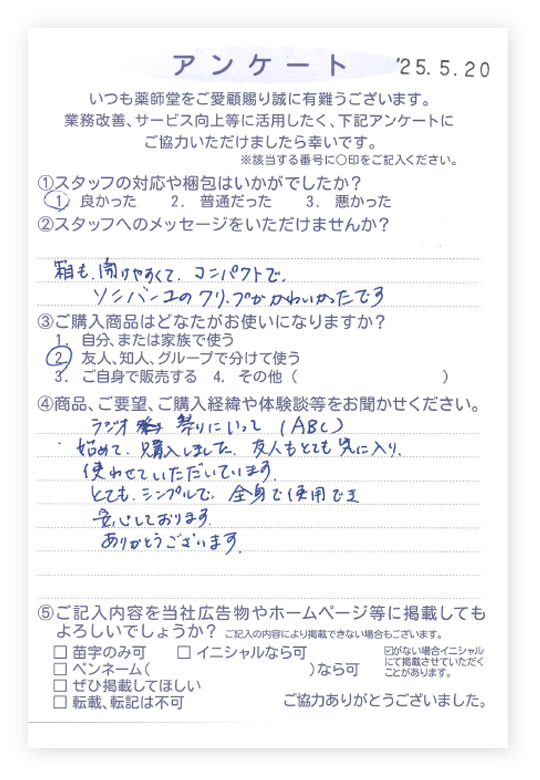 アンケート '25.5.20
いつも薬師堂をご愛顧賜り誠に有難うございます。
業務改善、サービス向上等に活用したく、下記アンケートに
ご協力いただけましたら幸いです。
※該当する番号に〇印をご記入ください。
①スタッフの対応や梱包はいかがでしたか?
1. 良かった 2. 普通だった 3. 悪かった
②スタッフへのメッセージをいただけませんか?
箱も、開けやすくて、コンパクトで、
ソンバーユのクリップがかわいかったです
③ご購入商品はどなたがお使いになりますか?
1. 自分、または家族で使う
2. 友人、知人、グループで分けて使う
3. ご自身で販売する 4. その他 ( )
④商品、ご要望、ご購入経緯や体験談等をお聞かせください。
ラジオ 祭りにいって (ABC)
始めて、購入しました。友人もとても気に入り、
使わせていただいています。
とても、シンプルで、全身で使用でき
安心しております。
ありがとうございます。
⑤ご記入内容を当社広告物やホームページ等に掲載しても
よろしいでしょうか? ご記入の内容により掲載できない場合もございます。
□ 苗字のみ可 □ イニシャルなら可
□ ペンネーム( )なら可
□ ぜひ掲載してほしい
□ 転載、転記は不可
☑がない場合イニシャル
にて掲載させていただく
ことがあります。
ご協力ありがとうございました。